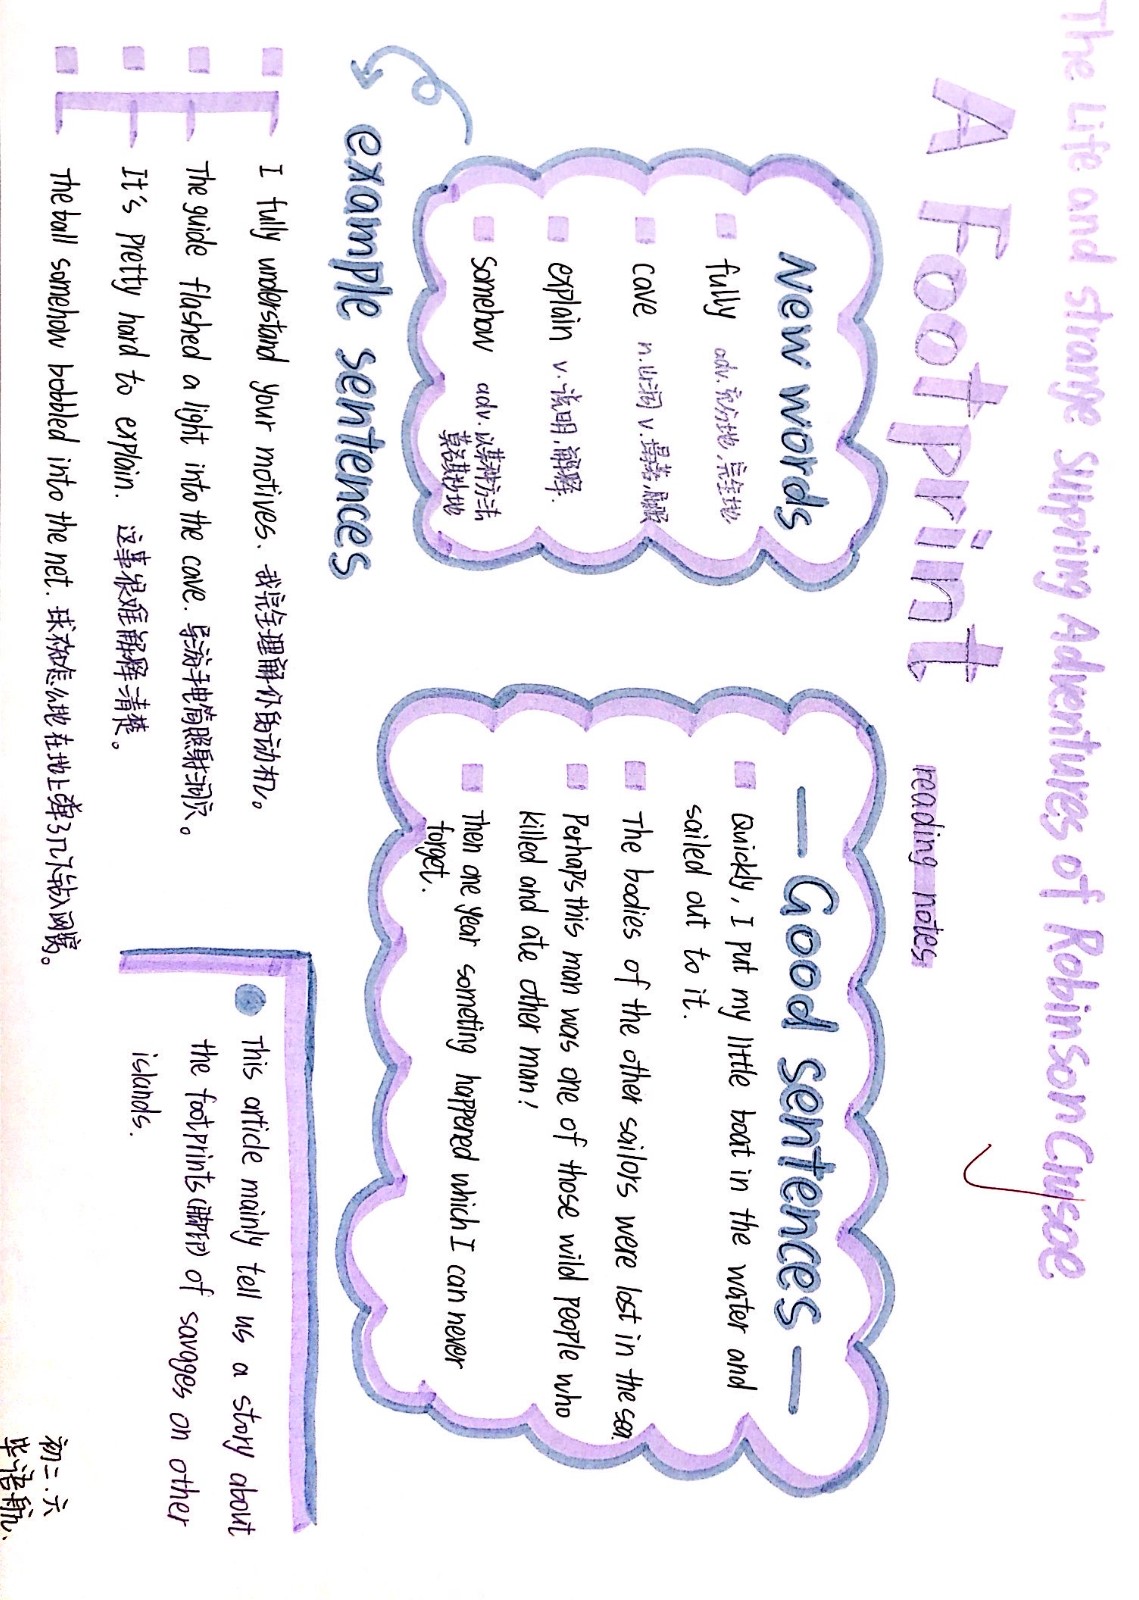 The Life and strange Surpring Adventures of Robinson Crusoe
A Footprint
reading notes
New words
fully adv. 充分地,完全地
cave n.山洞 v.
explain v. 说明,解释.
somehow adv. 以某种方法
莫名其妙地
example sentences
I fully understand your motives. 我完全理解你的动机。
The guide flashed a light into the cave. 导游手电筒照射洞穴。
It's pretty hard to explain. 这事很难解释清楚。
The ball somehow bobbled into the net. 球不知怎么地在地上弹了几下就入网窝。
— Good sentences —
Quickly, I put my little boat in the water and
sailed out to it.
The bodies of the other sailors were lost in the sea.
Perhaps this man was one of those wild people who
killed and ate other man!
Then one year someting happened which I can never
forget.
This article mainly tell us a story about
the footprints(脚印) of savages on other
islands.
初二.六